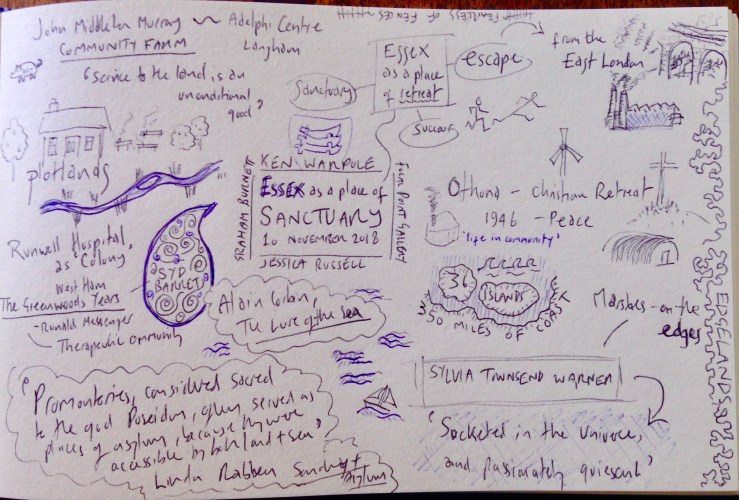 John Middleton Murray ~ Adelphi Centre
COMMUNITY FARM
Langham
'service to the land is an
unconditional good'
FEARLESS OF FENCES
Essex
as a place
of retreat
Sanctuary
escape
succour
from the
East London
plotlands
KEN WORPOLE
ESSEX as a place of
SANCTUARY
10 NOVEMBER 2018
JESSICA RUSSELL
GRAHAM BURNETT
FOCAL POINT GALLERY
Othona - Christian Retreat
1946 - Peace
'life in community'
Runwell Hospital,
as 'Colony'
West Ham
The Greenwoods Years
- Ronald Messenger
Therapeutic Community
STP
BARNLET
Alain Corbin,
The Lure of the Sea
36
ISLANDS
350 MILES OF COAST
Marshes - on the
edges
EDGELANDS
SYLVIA TOWNSEND WARNER
'Socketed in the universe,
and passionately quiescent'
'Promontories, considered sacred
to the god Poseidon, often served as
places of asylum, because they were
accessible by both land + sea'
Linda Rabben Sanctuary +
Asylum